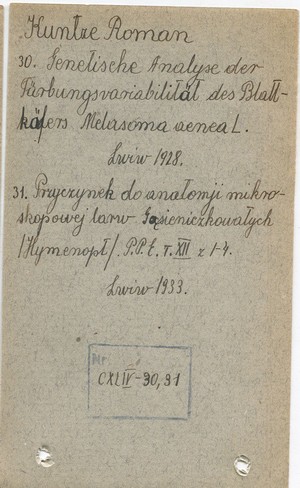 Kuntze Roman
30. Genetische Analyse der
Färbungsvariabilität des Blatt-
käfers Melasoma aenea L.
Lwiw 1928.
31. Przyczynek do anatomji mikro-
skopowej larw Gąsieniczkowatych
/Hymenopt/. P.P.E. T. XII z 1-4.
Lwiw 1933.
Nr.
CXLIV-30,31